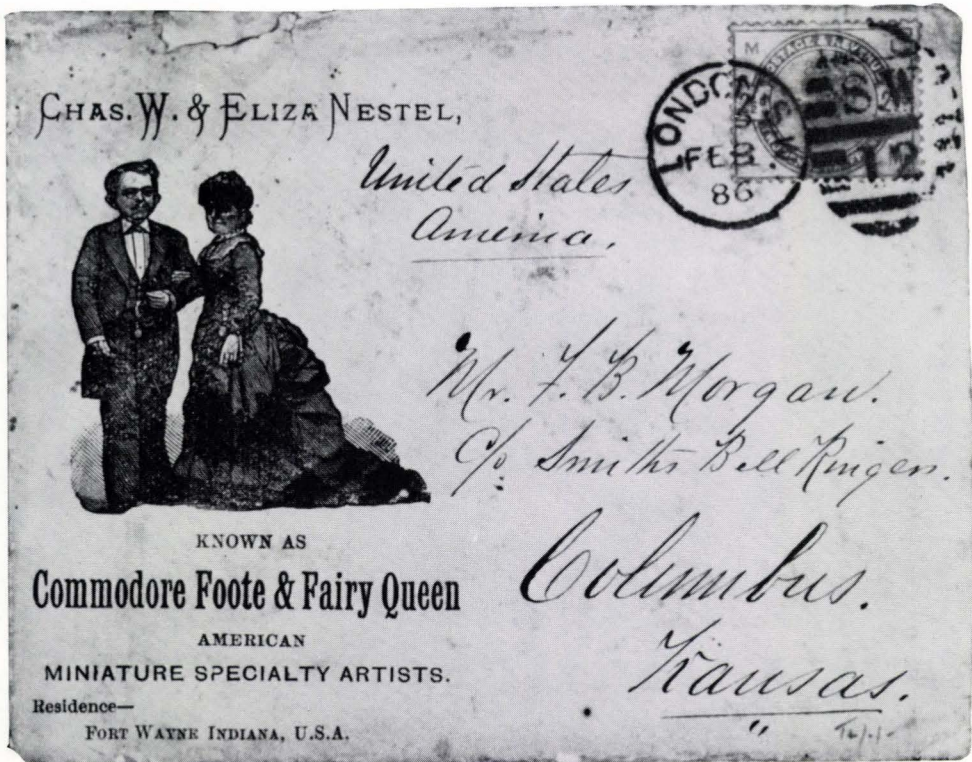 CHAS. W. & ELIZA NESTEL,
KNOWN AS
Commodore Foote & Fairy Queen
AMERICAN
MINIATURE SPECIALTY ARTISTS.
Residence—
FORT WAYNE INDIANA, U.S.A.
LONDON. S.W
FEB
86
M
POSTAGE & REVENUE
S.W
12
United States
America.
Mr. F. B. Morgan.
c/o Smiths Bell Ringers.
Columbus.
Kansas.
"